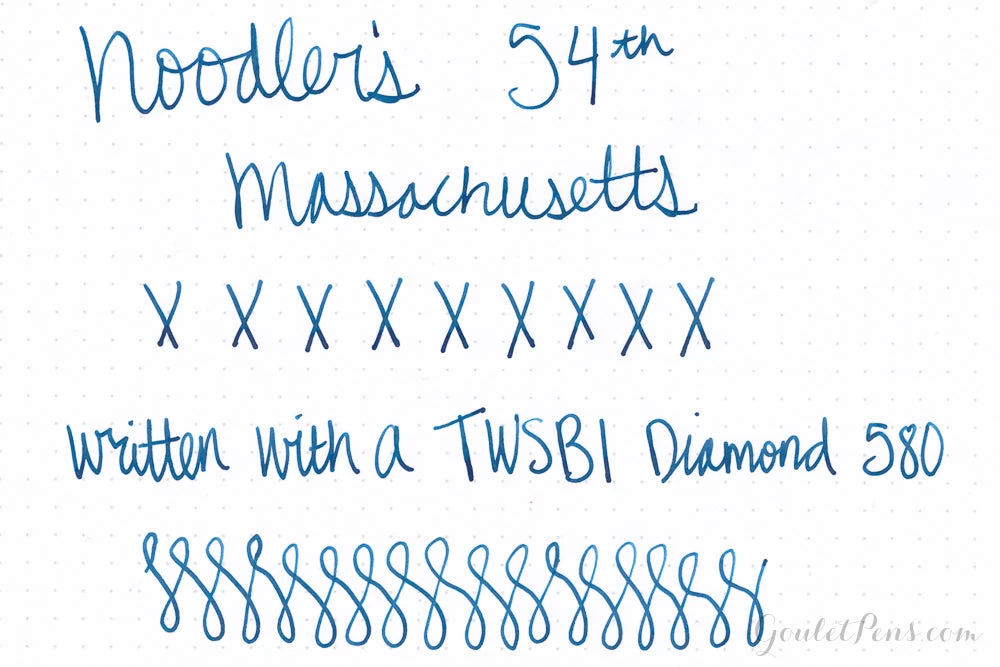 Noodler's 54th
Massachusetts
X X X X X X X X X
written with a TWSBI Diamond 580
GouletPens.com